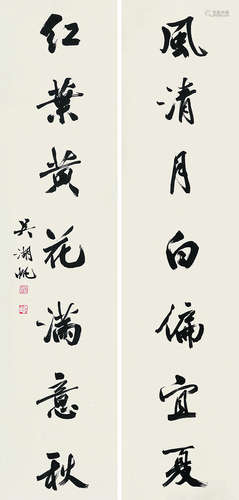 風清月白偏宜夏
紅葉黄花满意秋
吳湖帆